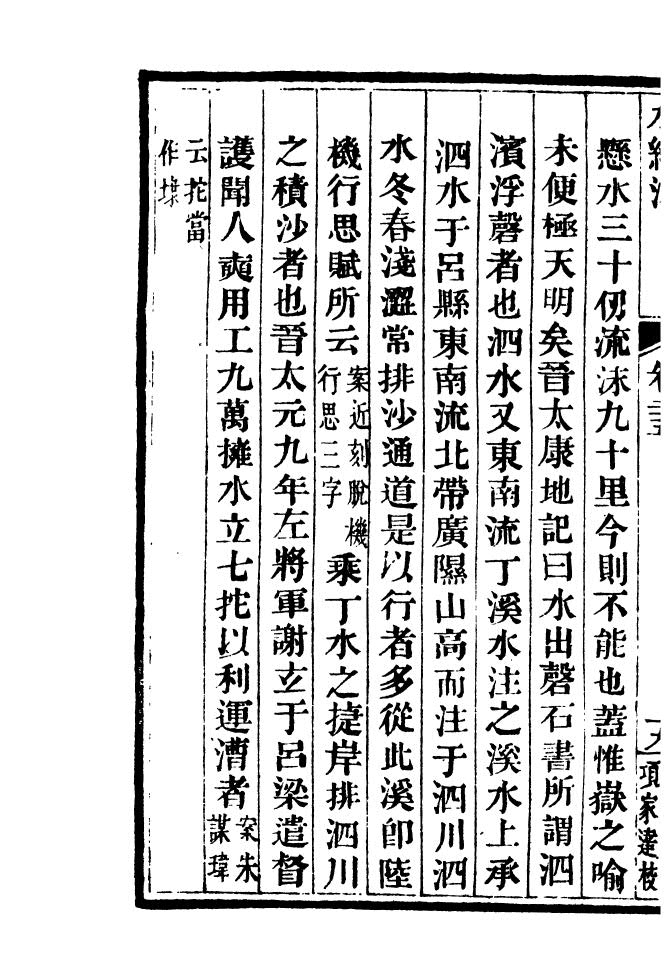 水經注 卷二十五 十八 項家達校
懸水三十仞流沫九十里今則不能也蓋惟嶽之喻
未便極天明矣晉太康地記曰水出磬石書所謂泗
濱浮磬者也泗水又東南流丁溪水注之溪水上承
泗水于呂縣東南流北帶廣隰山高而注于泗川泗
水冬春淺澀常排沙通道是以行者多從此溪卽陸
機行思賦所云案近刻脫機行思三字乘丁水之捷岸排泗川
之積沙者也晉太元九年左將軍謝玄于呂梁遣督
護聞人奭用工九萬擁水立七拕以利運漕者案朱謀㙔
云拕當作埭